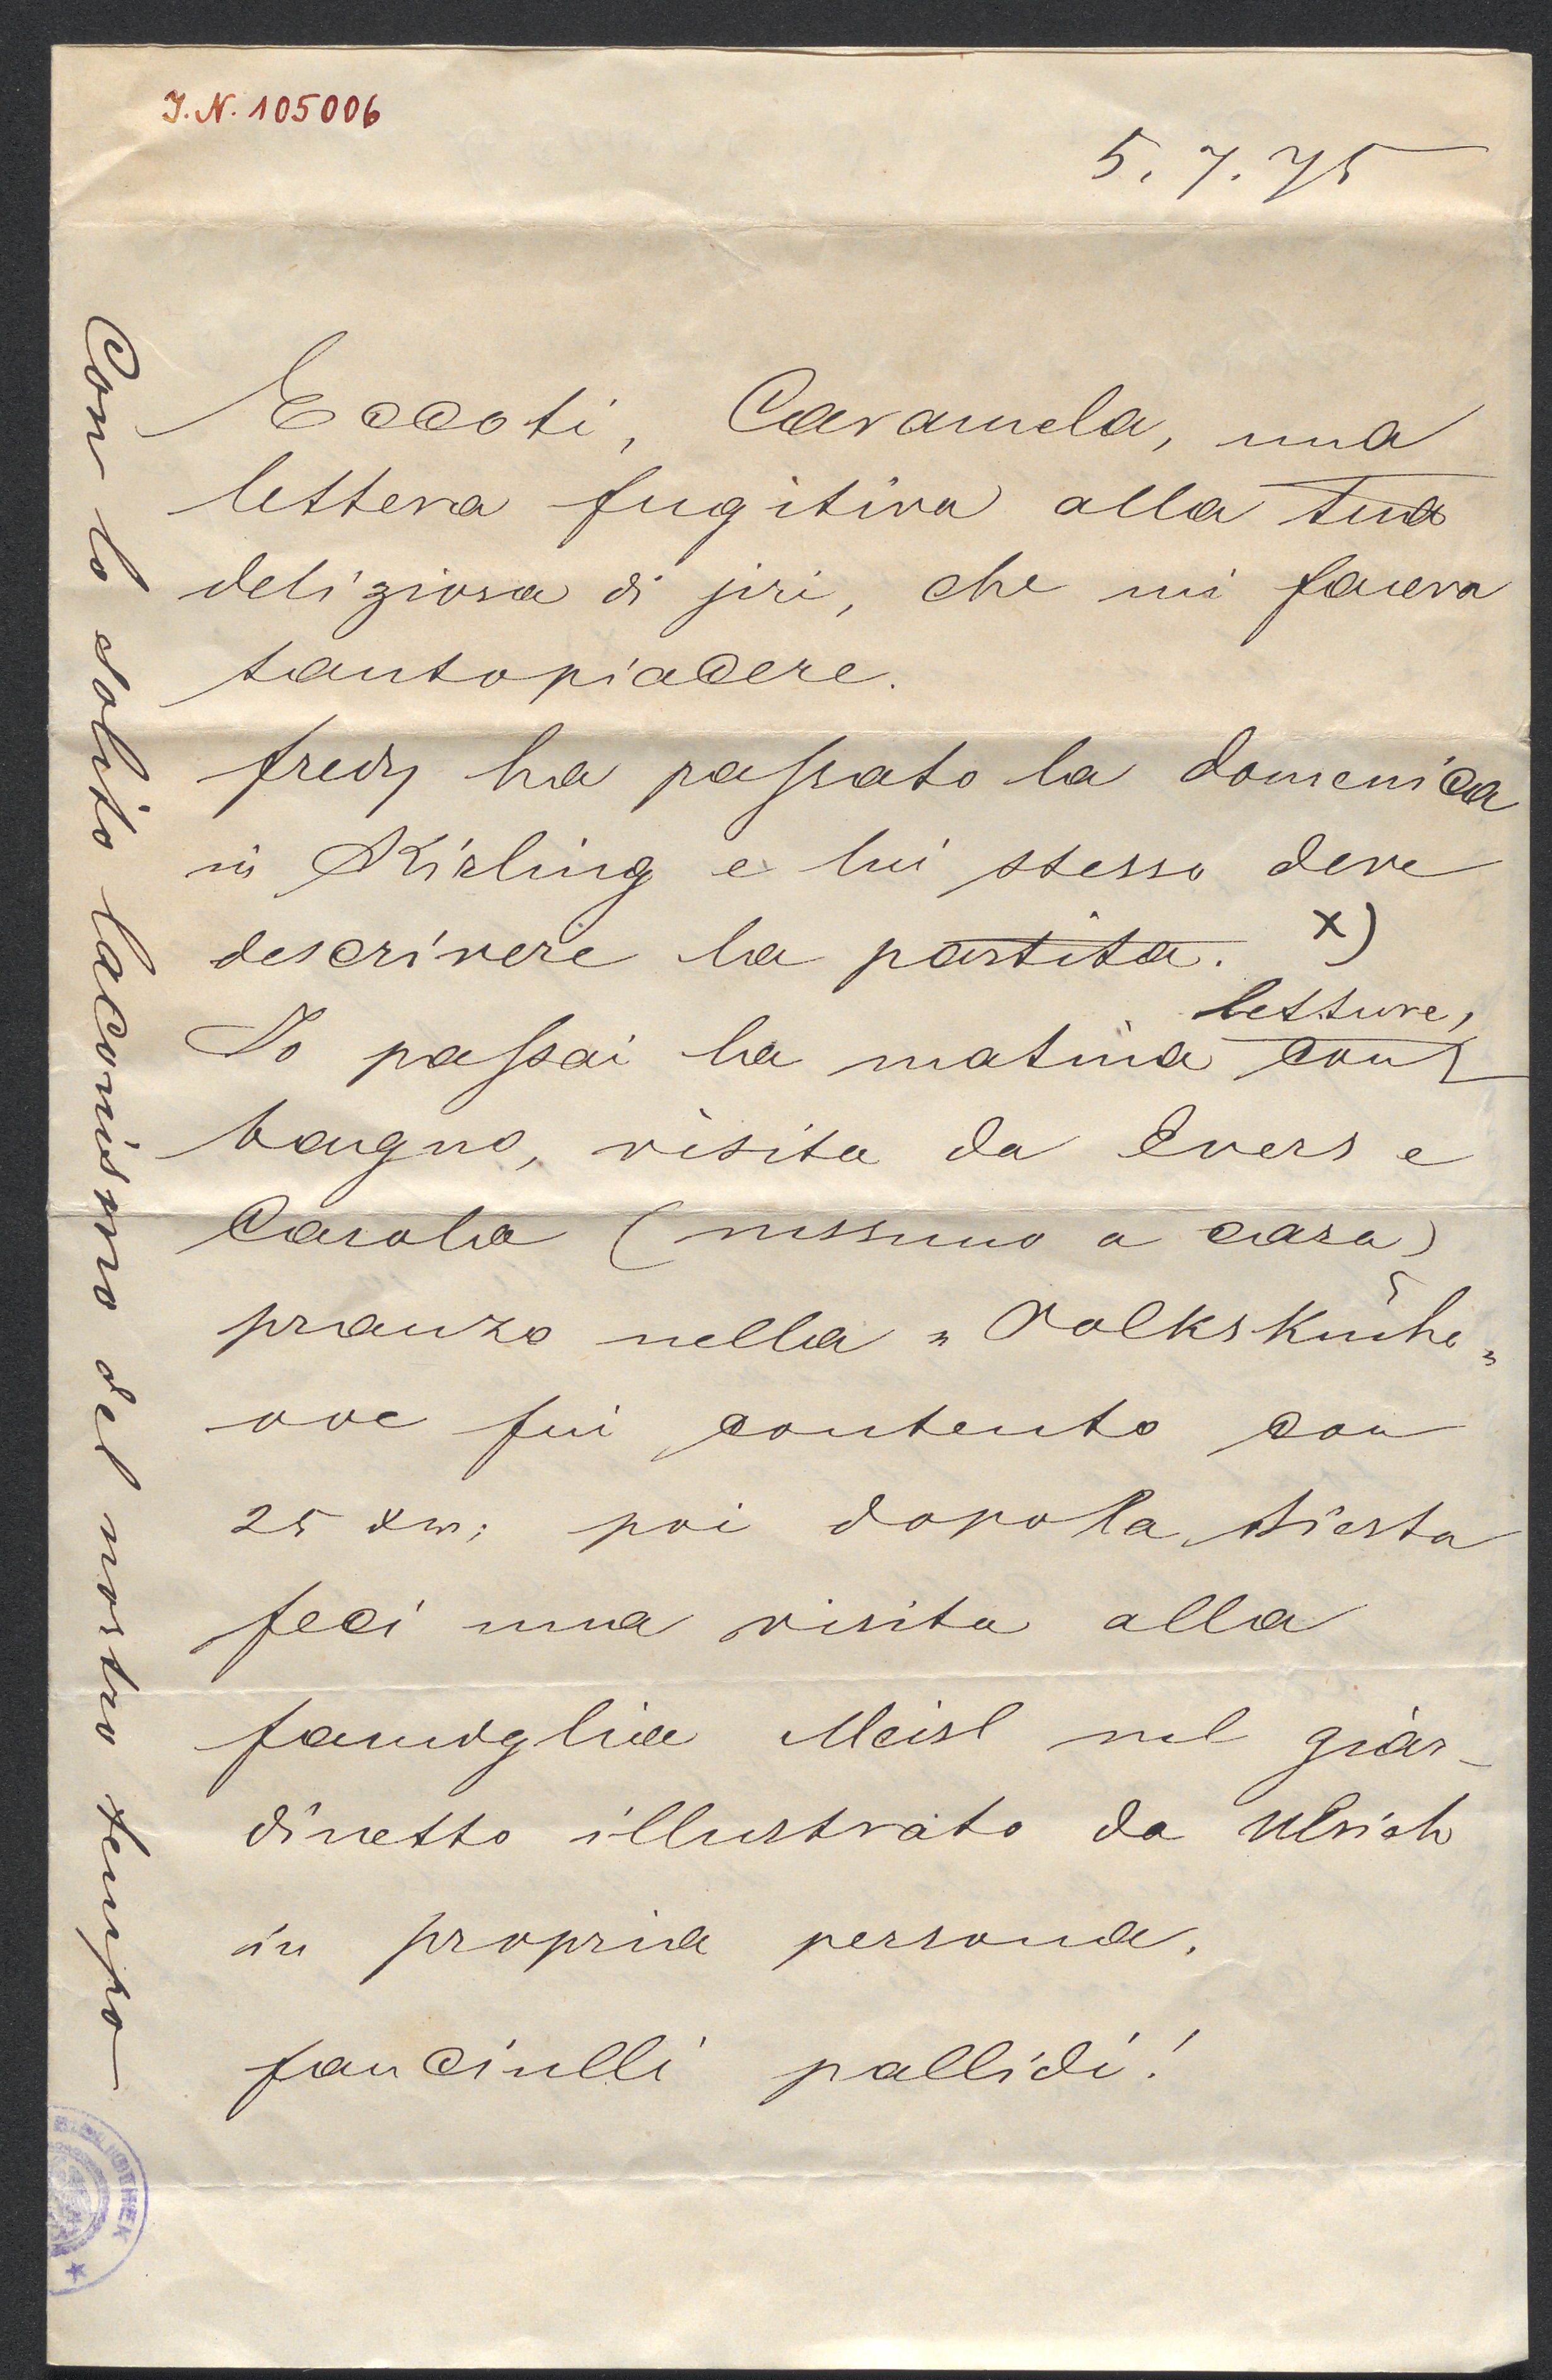 J.N. 105006
5. 7. 75
Eccoti, Caramela, una
lettera fugitiva alla tua
deliziosa di jiri, che mi faceva
tantopiacere.
fredy ha passato la domenica
in Kirling e lui stesso deve
descrivere la partita. x)
letture,
Io passai la matina con
bagno, visita da Evers e
Carola (nessuno a casa)
pranzo nella „Volksküche„
ove fui contento con
25 xr; poi dopo la siesta
feci una visita alla
famiglia Meisl nel giar-
dinetto illustrato da Ulrich
in propria persona.
fanciulli pallidi!
Con lo solito laconismo del nostro tempo
BIBLIOTHEK